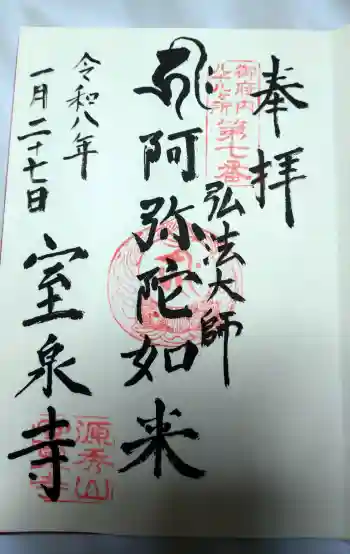 奉拝
御府内
八十八ヶ所
第七番
弘法大師
阿弥陀如来
令和八年
一月二十七日
室泉寺
源秀山